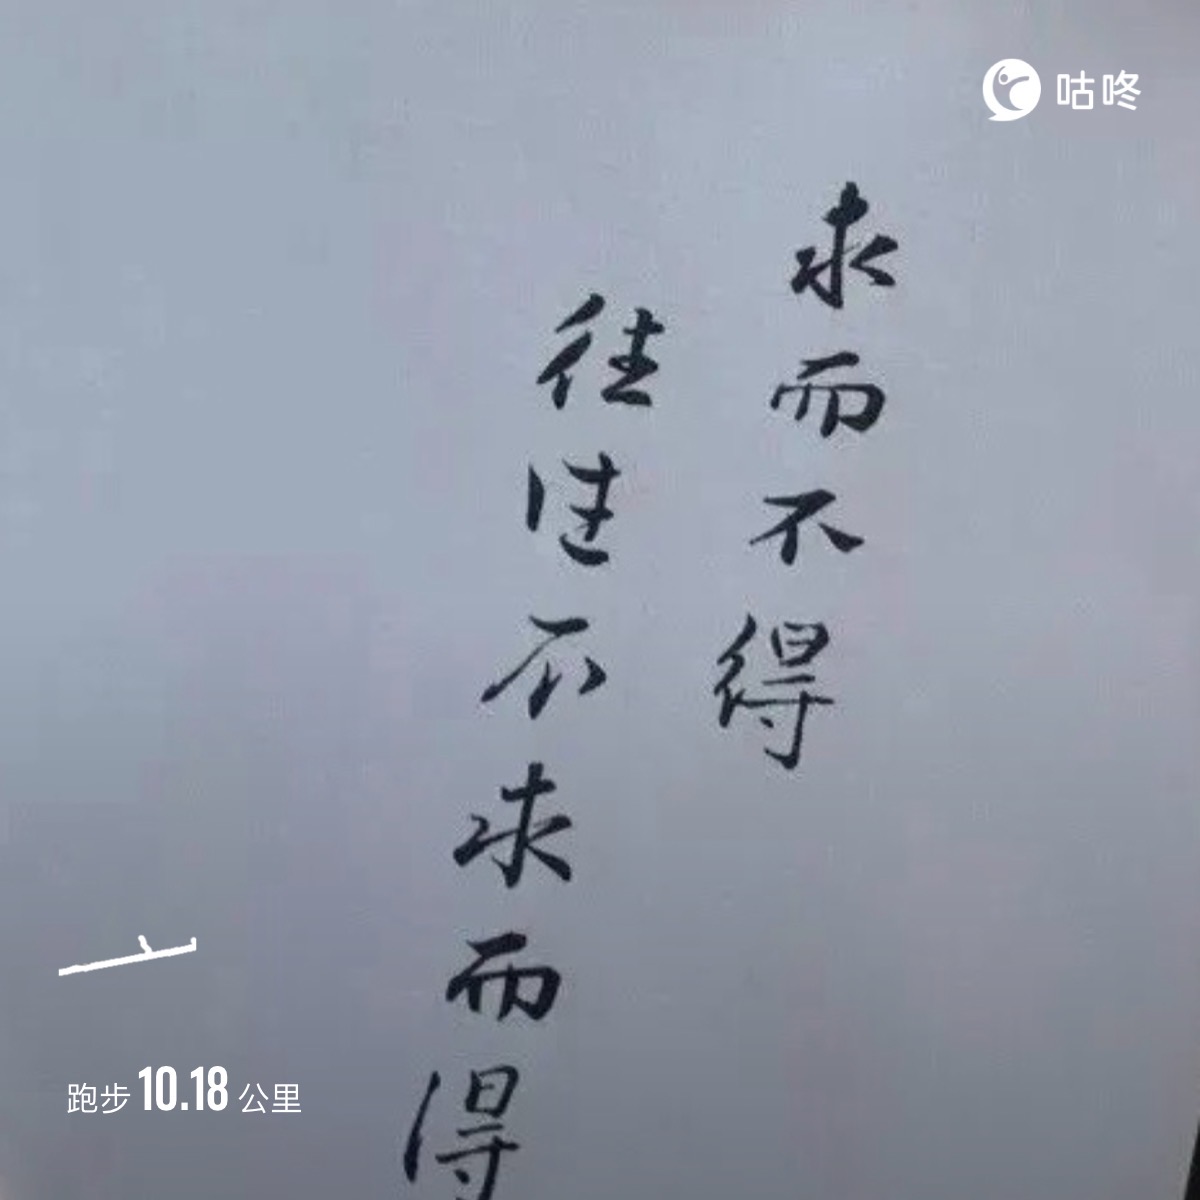 咕咚
求而不得
往往不求而得
跑步 10.18 公里